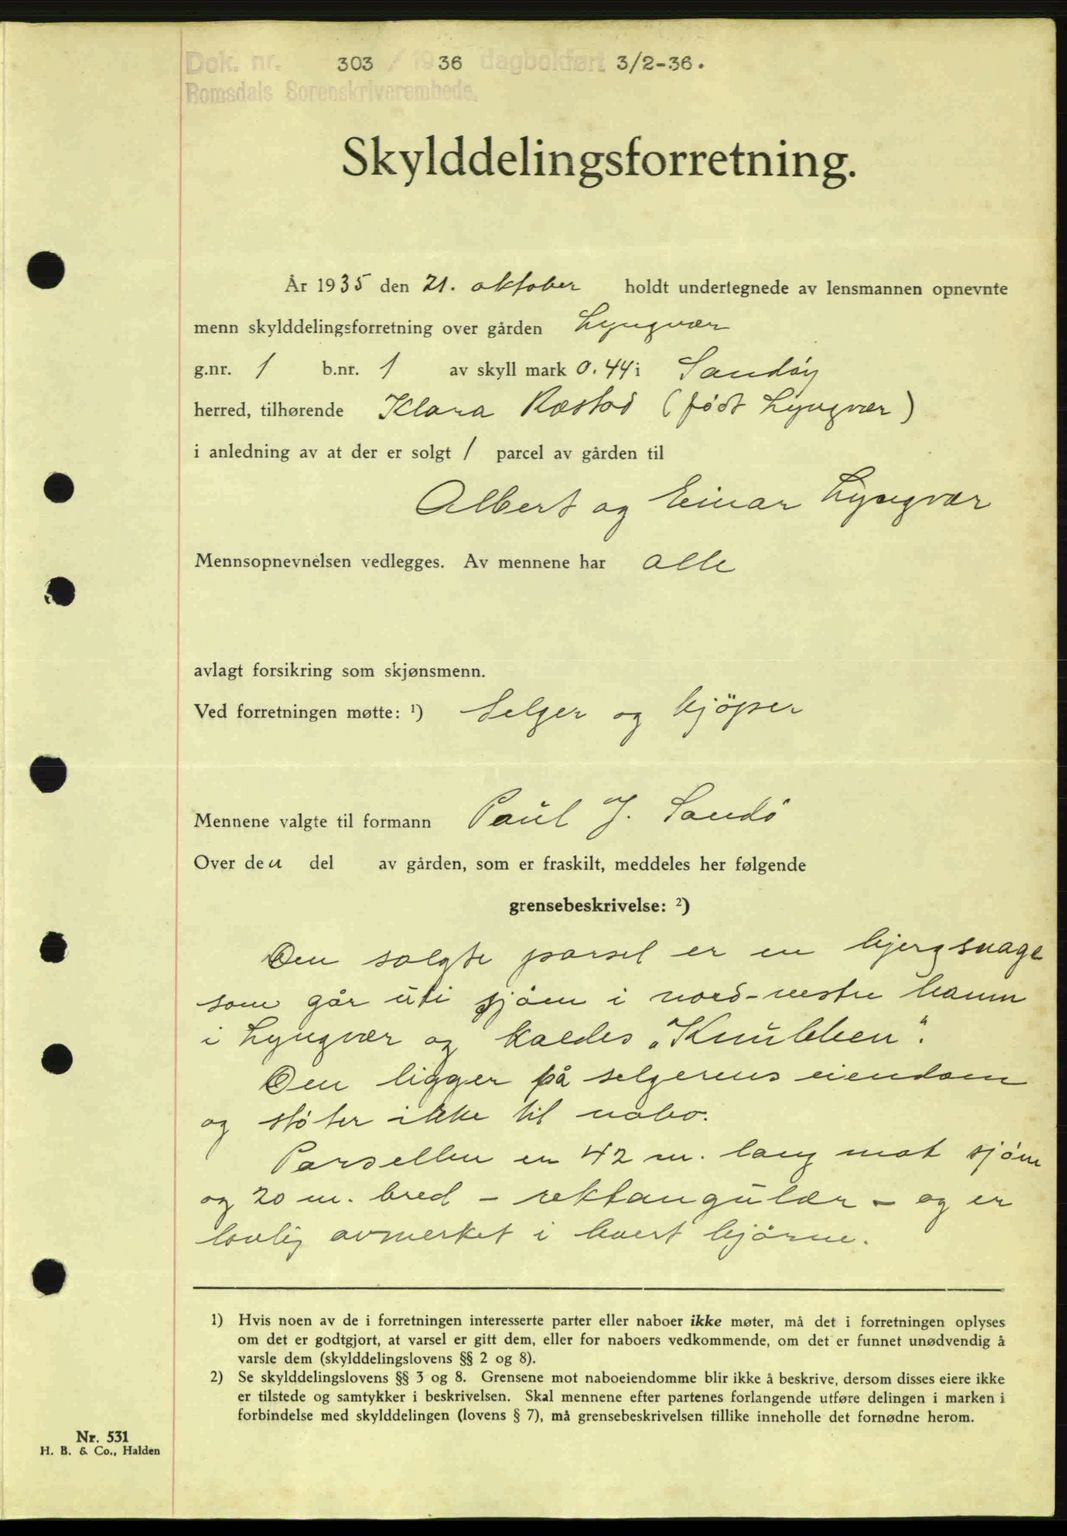 Dok. nr. 303 / 1936 dagbokført 3/2-36.
Romsdals Sorenskriverembede.
Skylddelingsforretning.
År 1935 den 21. oktober holdt undertegnede av lensmannen opnevnte
menn skylddelingsforretning over gården Lyngvær
g.nr. 1 b.nr. 1 av skyll mark 0.44 i Sandøy
herred, tilhørende Klara Ræstad (født Lyngvær)
i anledning av at der er solgt 1 parcel av gården til
Albert og Einar Lyngvær
Mennsopnevnelsen vedlegges. Av mennene har alle
avlagt forsikring som skjønsmenn.
Ved forretningen møtte: 1) Selger og kjöper
Mennene valgte til formann Paul J. Sandö
Over den del av gården, som er fraskilt, meddeles her følgende
grensebeskrivelse: 2)
Den solgte parsel er en bjergsnage
som går uti sjöen i nord-vestre havn
i Lyngvær og kaldes „Knubben".
Den ligger på selgerens eiendom
og stöter ikke til nabo.
Parsellen en 42 m. lang mot sjöen
og 20 m. bred - rektangulær - og er
lovlig avmerket i hvert hjörne.
1) Hvis noen av de i forretningen interesserte parter eller naboer ikke møter, må det i forretningen oplyses
om det er godtgjort, at varsel er gitt dem, eller for naboers vedkommende, om det er funnet unødvendig å
varsle dem (skylddelingslovens §§ 2 og 8).
2) Se skylddelingslovens §§ 3 og 8. Grensene mot naboeiendomme blir ikke å beskrive, dersom disses eiere ikke
er tilstede og samtykker i beskrivelsen. Skal mennene efter partenes forlangende utføre delingen i marken i
forbindelse med skylddelingen (lovens § 7), må grensebeskrivelsen tillike inneholle det fornødne herom.
Nr. 531
H. B. & Co., Halden